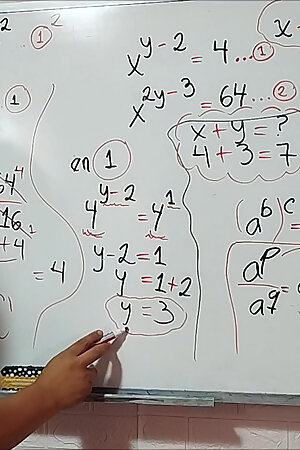 2
① ²
x^{y-2} = 4 ...①
x^{2y-3} = 64 ...②
x + y = ?
4 + 3 = 7
en ①
4^{y-2} = 4^1
y-2 = 1
y = 1+2
y = 3
①
= 4
(a^b)^c
a^p
a^q =